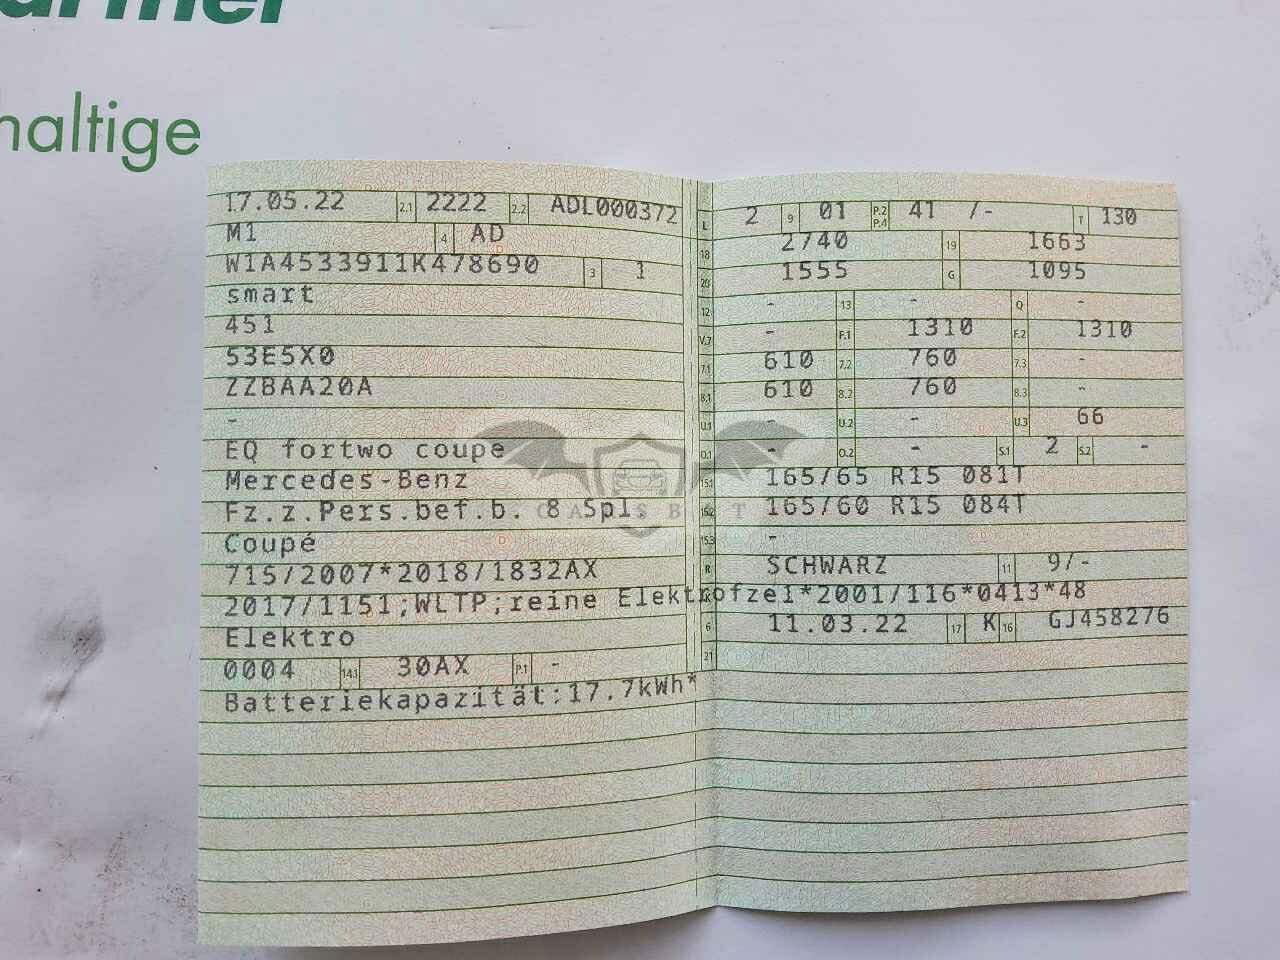 haltige
17.05.22 2.1 2222 2.2 ADL000372
M1 4 AD
W1A4533911K478690 3 1
smart
451
53E5X0
ZZBAA20A
-
EQ fortwo coupe
Mercedes-Benz
Fz.z.Pers.bef.b. 8 Spl.
Coupé
715/2007*2018/1832AX
2017/1151;WLTP;reine Elektrofzel*2001/116*0413*48
Elektro
0004 14.1 30AX P.1 -
Batteriekapazität:17.7kWh*
L 2 9 01 P.2 P.4 41 /- T 130
18 2740 19 1663
20 1555 G 1095
12 - 13 - Q -
V.7 - F.1 1310 F.2 1310
7.1 610 7.2 760 7.3 -
8.1 610 8.2 760 8.3 -
U.1 - U.2 - U.3 66
O.1 - O.2 - S.1 2 S.2 -
15.1 165/65 R15 081T
15.2 165/60 R15 084T
15.3 -
R SCHWARZ 11 9/-
6 11.03.22 17 K 16 GJ458276
21